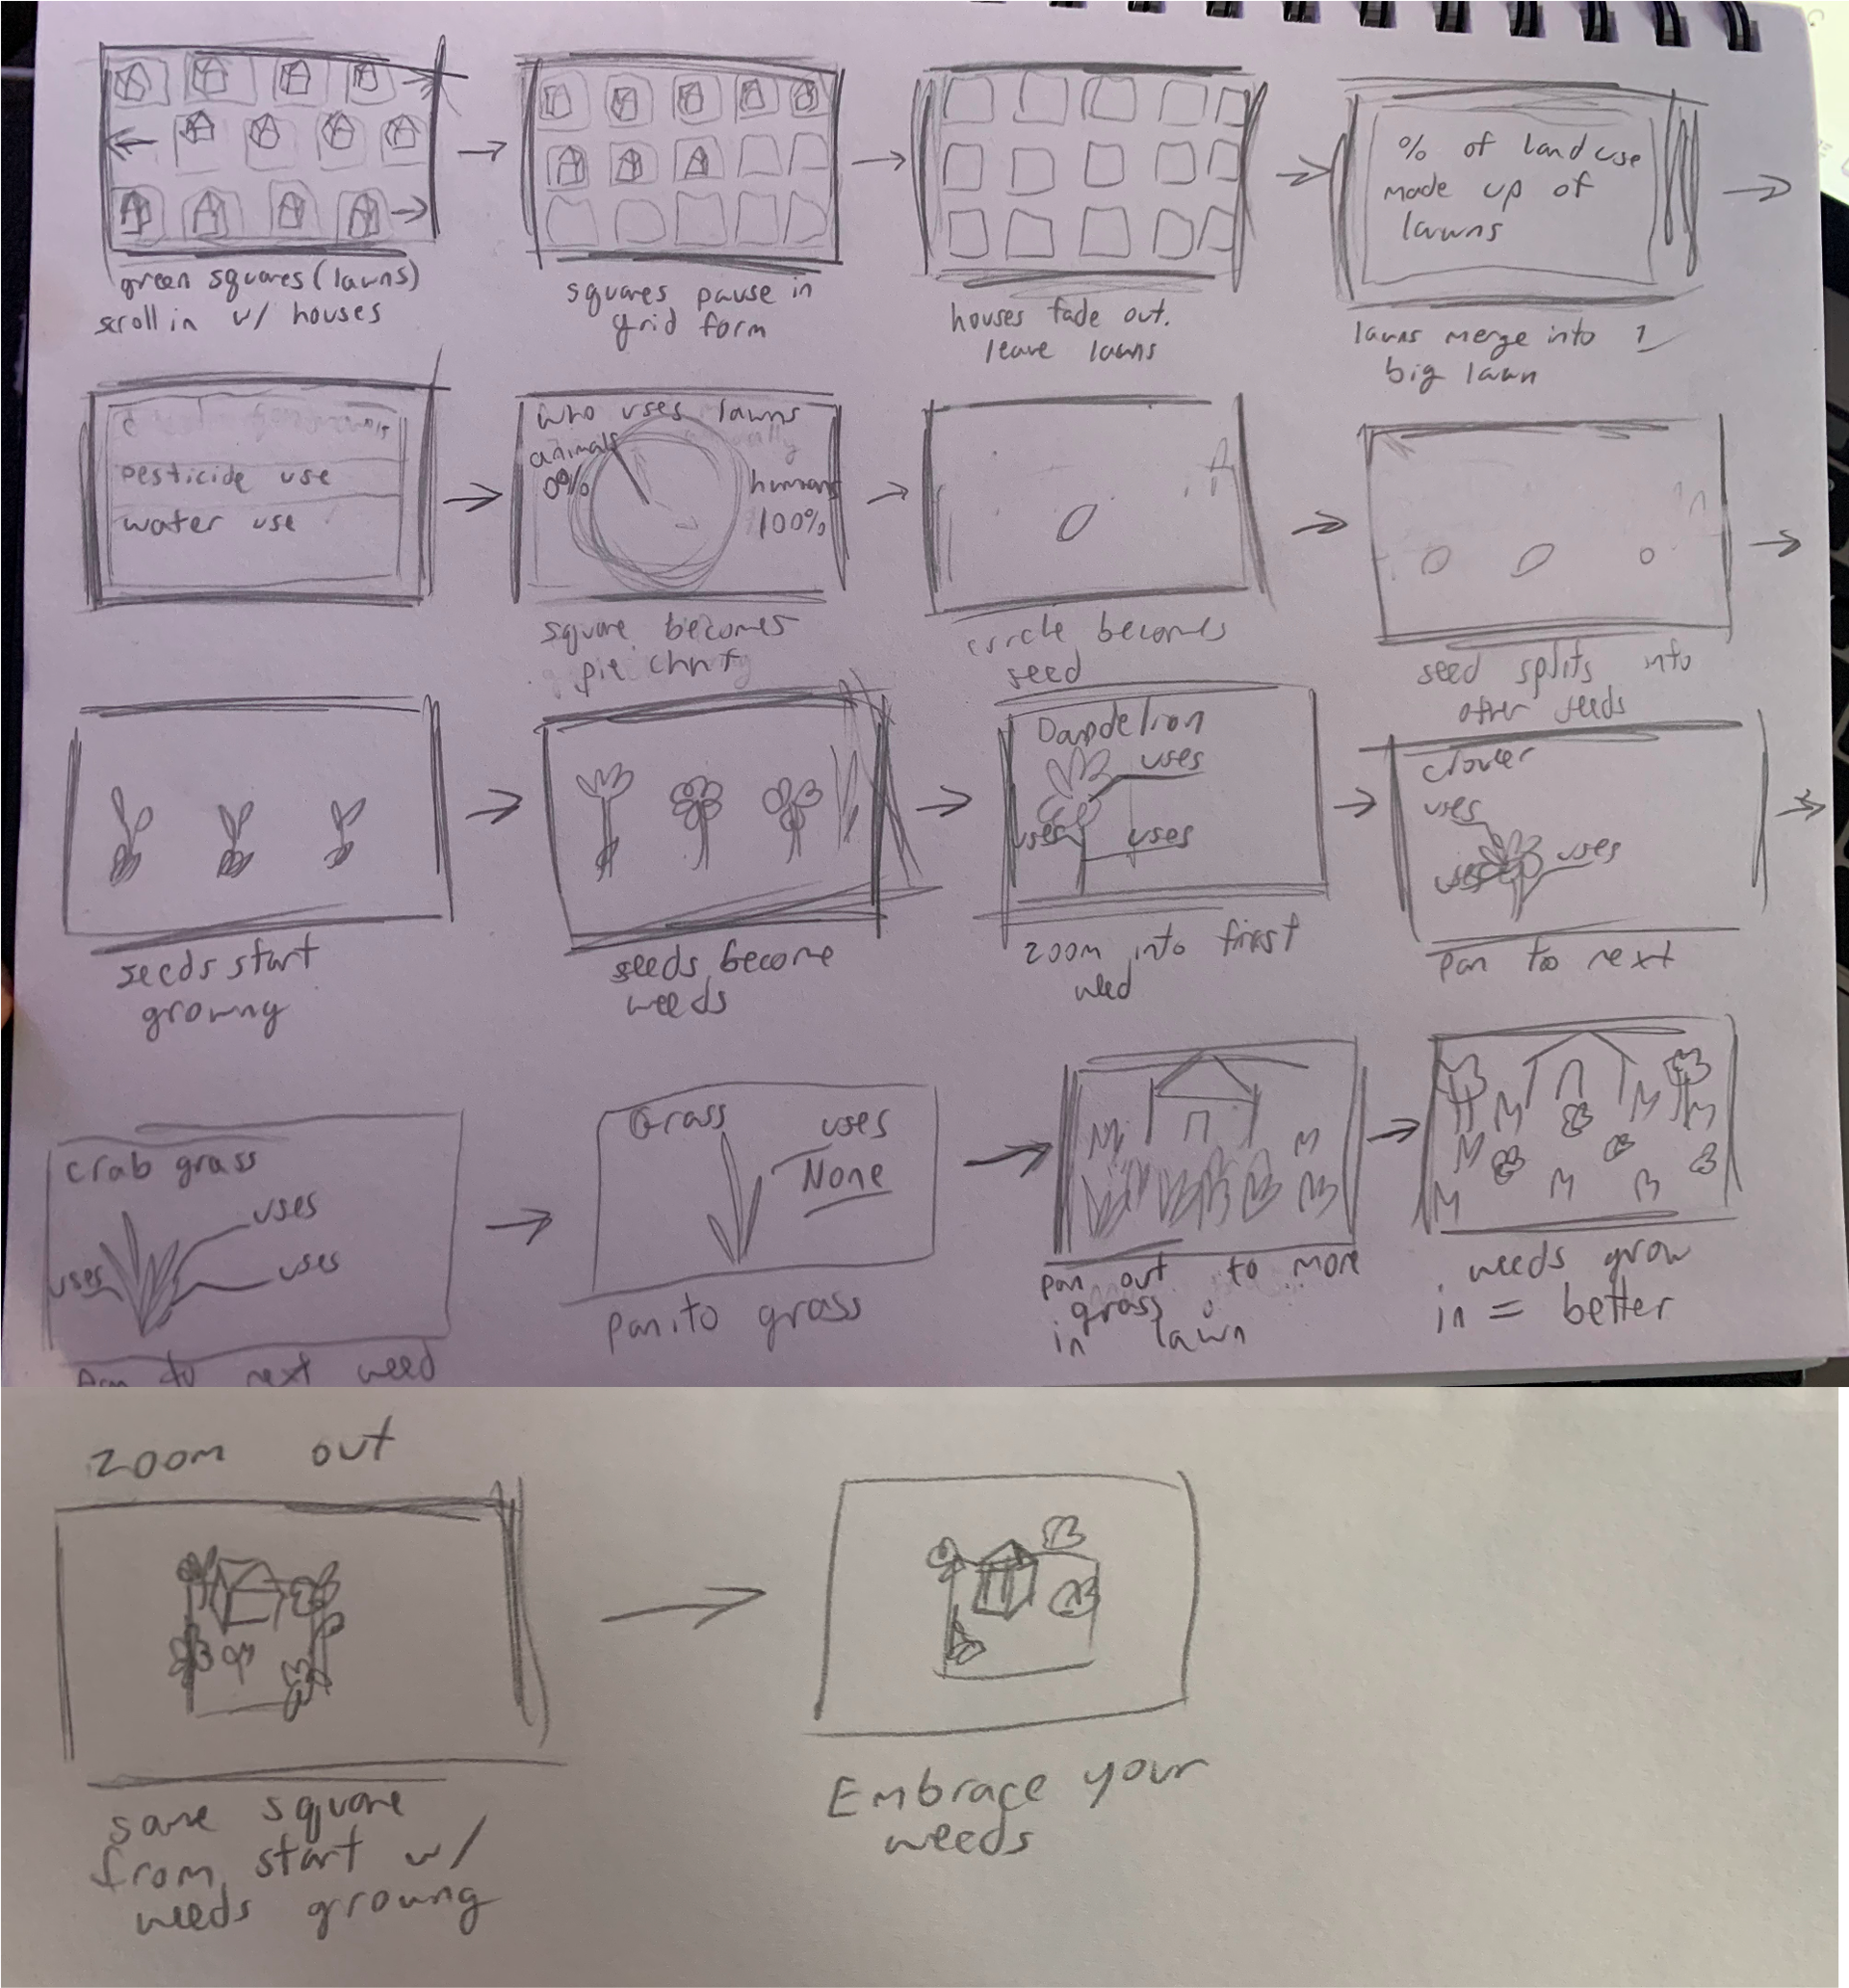 green squares (lawns)
scroll in w/ houses
squares pause in
grid form
houses fade out.
leave lawns
% of land use
made up of
lawns
lawns merge into 1
big lawn
pesticide use
water use
who uses lawns
animals
0%
humans
100%
square becomes
pie chart
circle becomes
seed
seed splits into
other seeds
seeds start
growng
seeds become
weeds
Dandelion
uses
uses
uses
zoom into first
weed
clover
uses
uses
uses
pan to next
crab grass
uses
uses
uses
pan to next weed
Grass
uses
None
pan to grass
pan out to more
grass
in lawn
weeds grow
in = better
zoom out
same square
from start w/
weeds growng
Embrace your
weeds